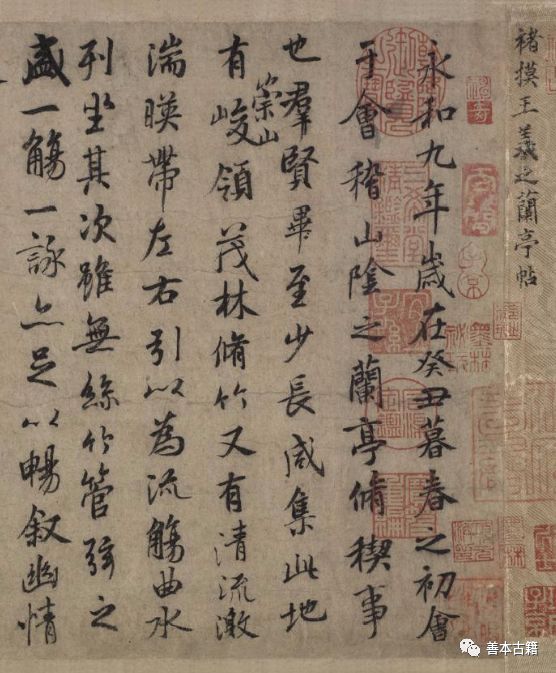 褚摸王羲之蘭亭帖
永和九年歲在癸丑暮春之初會
于會稽山陰之蘭亭脩稧事
也羣賢畢至少長咸集此地
有崇山峻領茂林脩竹又有清流激
湍暎帶左右引以為流觴曲水
列坐其次雖無絲竹管弦之
盛一觴一詠亦足以暢敘幽情
善本古籍